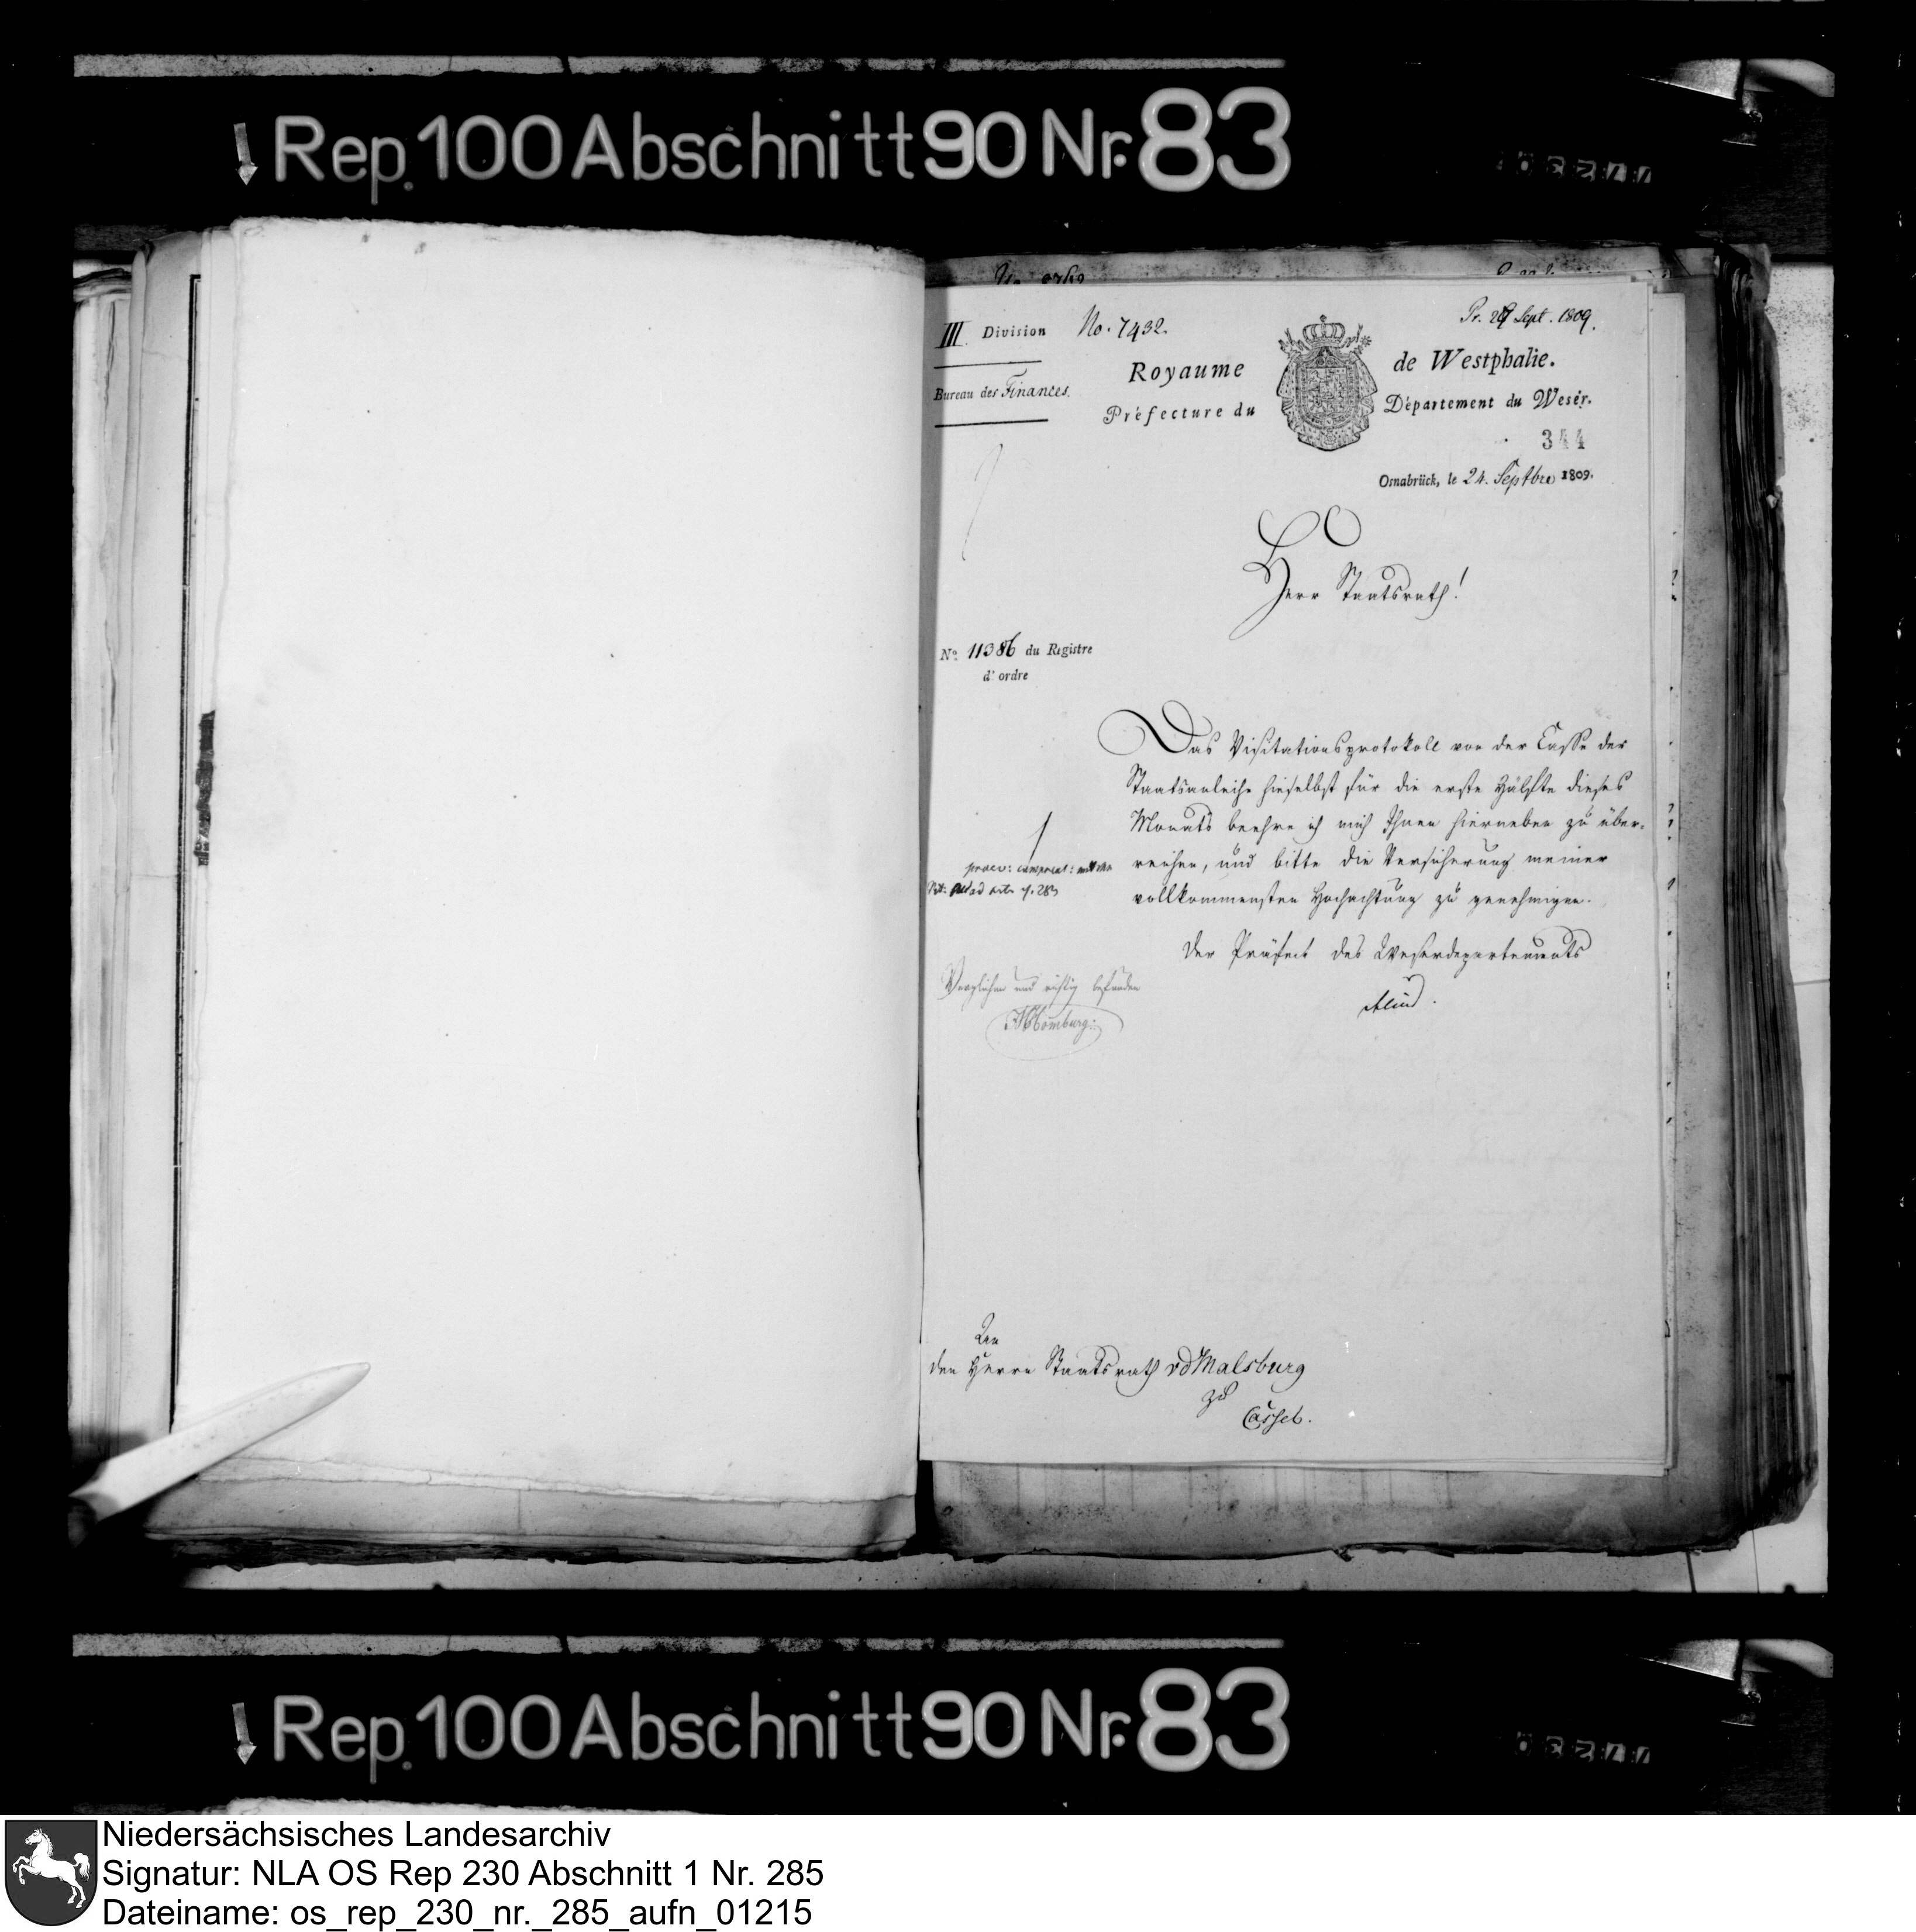 Rep. 100 Abschnitt 90 Nr. 83
III. Division No. 7432.
Pr. 29 Sept. 1809.
Royaume de Westphalie.
Bureau des Finances.
Préfecture du Département du Weser.
344
Osnabrück, le 24. Septbre 1809.
Herr Staatsrath!
No. 11386 du Registre
d'ordre
Das Visitationsprotokoll von der Casse der
Staatsanleihe hieselbst für die erste Hälfte dieses
Monats beehre ich mich Ihnen hierneben zu über-
reichen, und bitte die Versicherung meiner
vollkommensten Hochachtung zu genehmigen.
Der Präfect des Weserdepartements
Verglichen und richtig befunden
Homburg
An
den Herrn Staatsrath vd Malsburg
zu
Cassel.
Rep. 100 Abschnitt 90 Nr. 83
Niedersächsisches Landesarchiv
Signatur: NLA OS Rep 230 Abschnitt 1 Nr. 285
Dateiname: os_rep_230_nr._285_aufn_01215